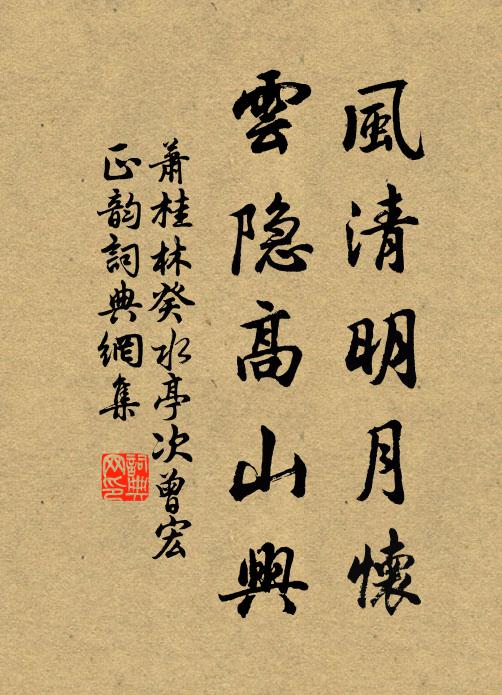 風清明月懷
雲隐高山興
蕭桂林癸水亭次曾宏
正韵詞典網集
詞典
网印